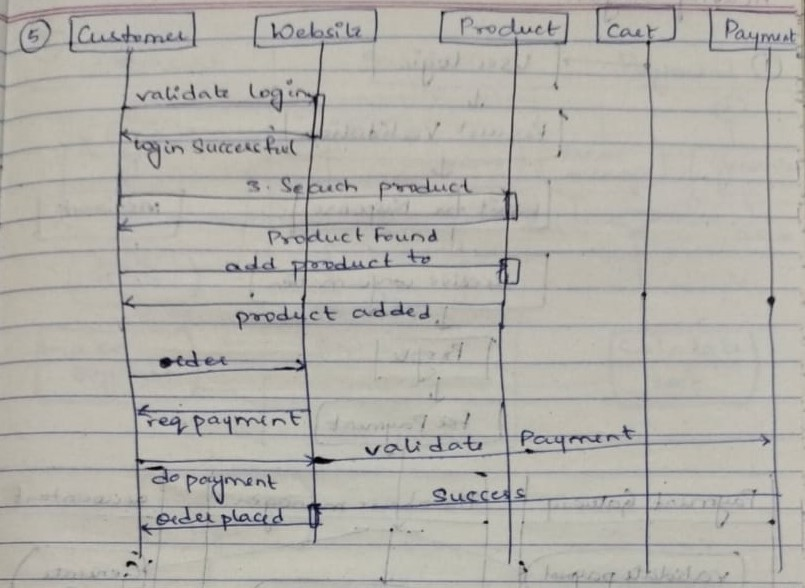 5 Customer Website Product Cart Payment
validate login
login Successful
3. Search product
Product Found
add product to
product added.
order
req payment
validate Payment
do payment
Success
order placed